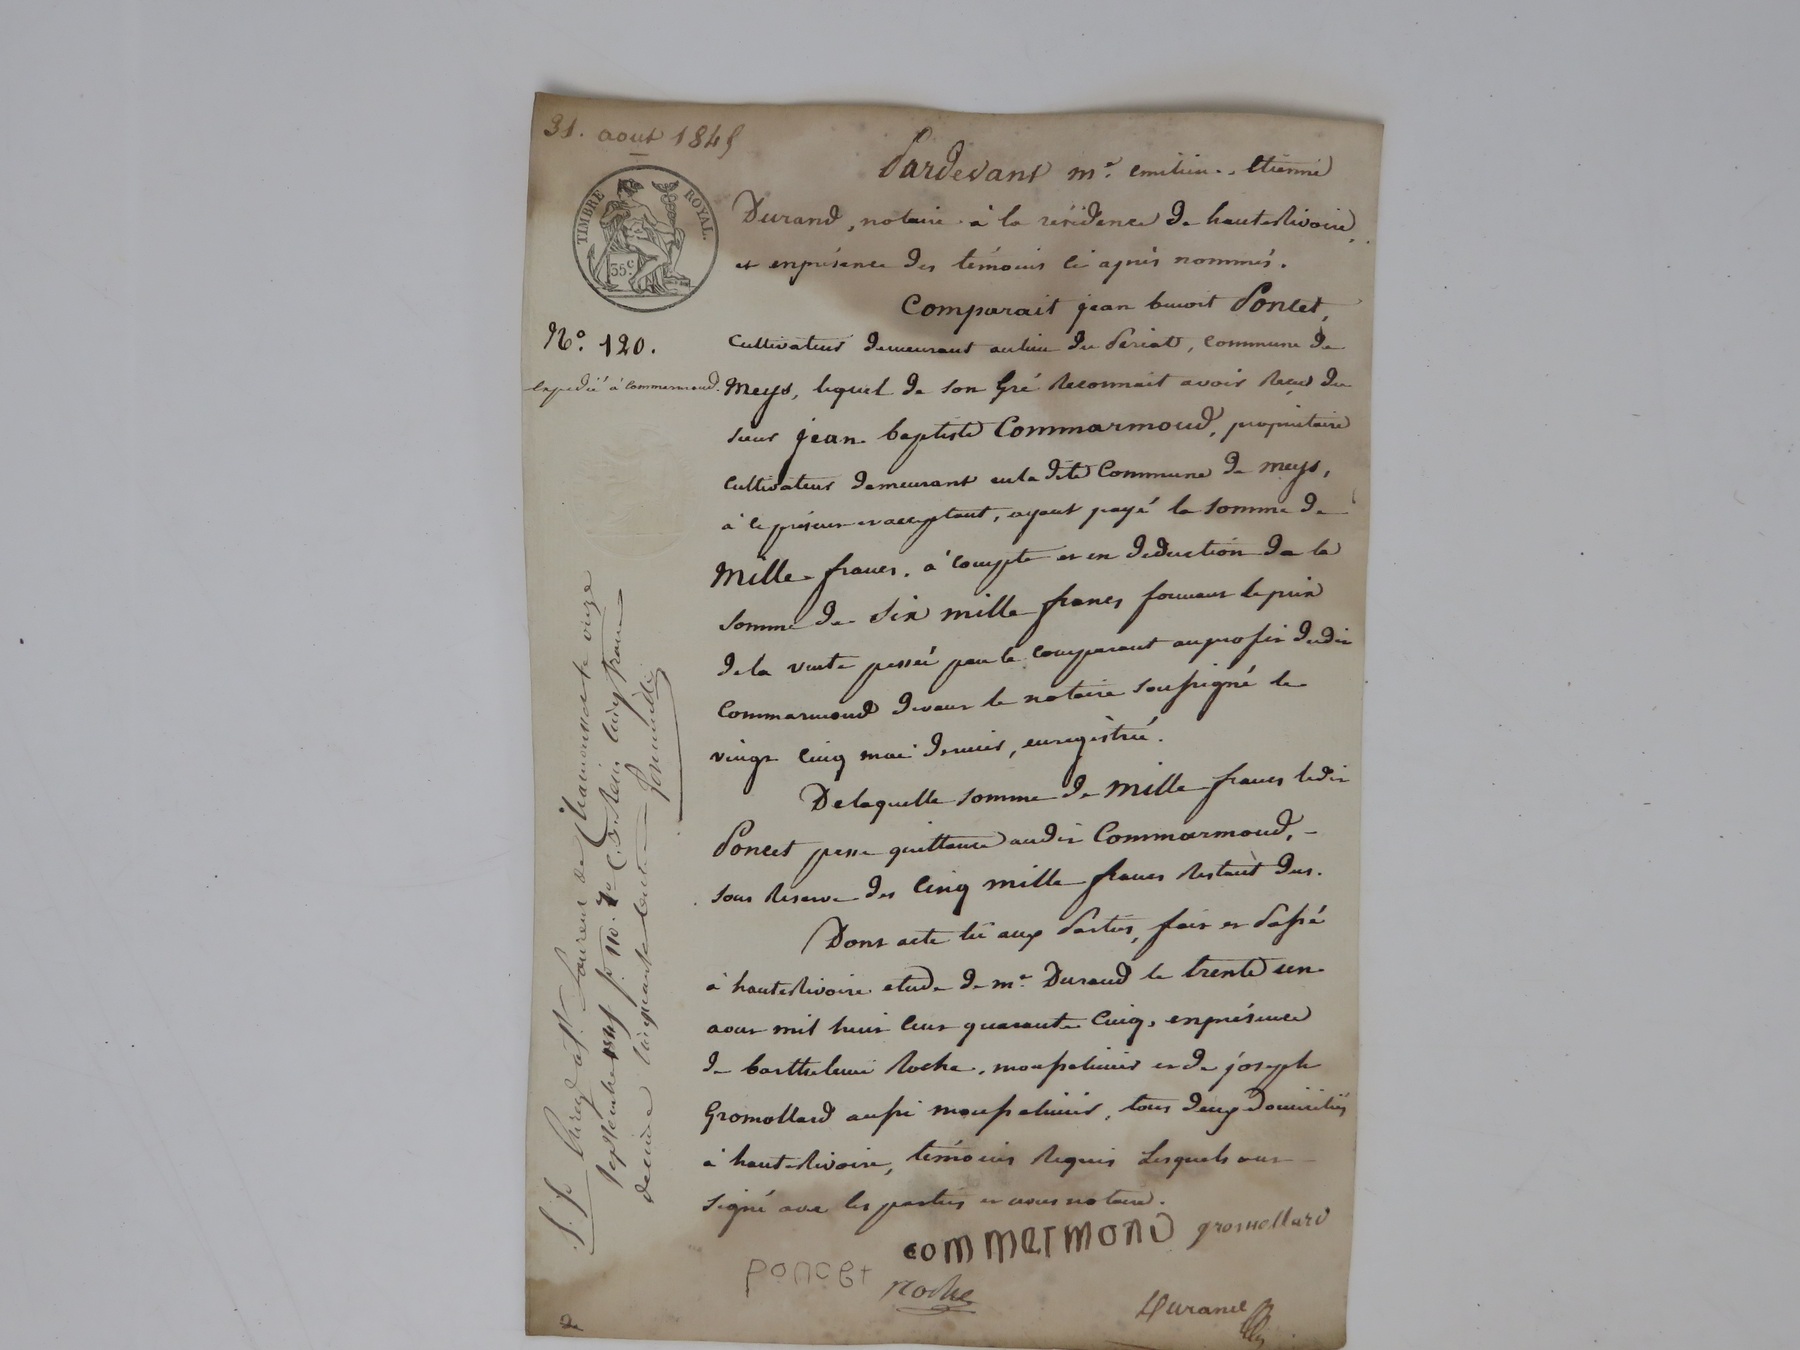 31. aout 1845
TIMBRE ROYAL.
35c
Pardevant me. emilien. etienne
Durand, notaire à la résidence de hauterivoire,
et enprésence des témoins ci après nommés.
Comparait jean benoit Poncet,
N°. 120.
cultivateur demeurant aulieu du Périat, commune de
expedié à Commermond.
Meys, lequel de son gré reconnait avoir reçu du
sieur jean baptiste Commarmond, propriétaire
cultivateur demeurant enladite Commune de meys,
à ce présent et acceptant, ayant payé la somme de
Mille francs, à compte et en déduction de la
somme de six mille francs formant le prix
de la vente passée par le comparant auprofit dudit
Commarmond devant le notaire soussigné le
vingt cinq mai dernier, enregistrée.
Delaquelle somme de mille francs ledit
Poncet passe quittance audit Commarmond,
sous réserve des cinq mille francs restant dus.
Dont acte lu aux Parties, fait et Passé
à hauterivoire etude de me. Durand le trente un
aout mil huit cent quarante cinq, enprésence
de barthelemi Roche, mousselinier et de joseph
Gromollard aussi mousselinier, tous deux Domiciliés
à hauterivoire, témoins requis Lesquels ont
signé avec les parties et nous notaire.
commermond gromollard
poncet
roche
Durand
Enreg à St Laurent de Chamousset le onze
septembre 1845 fo. 110. Ro C. 3. Reçu cinq francs
decime cinquante centimes